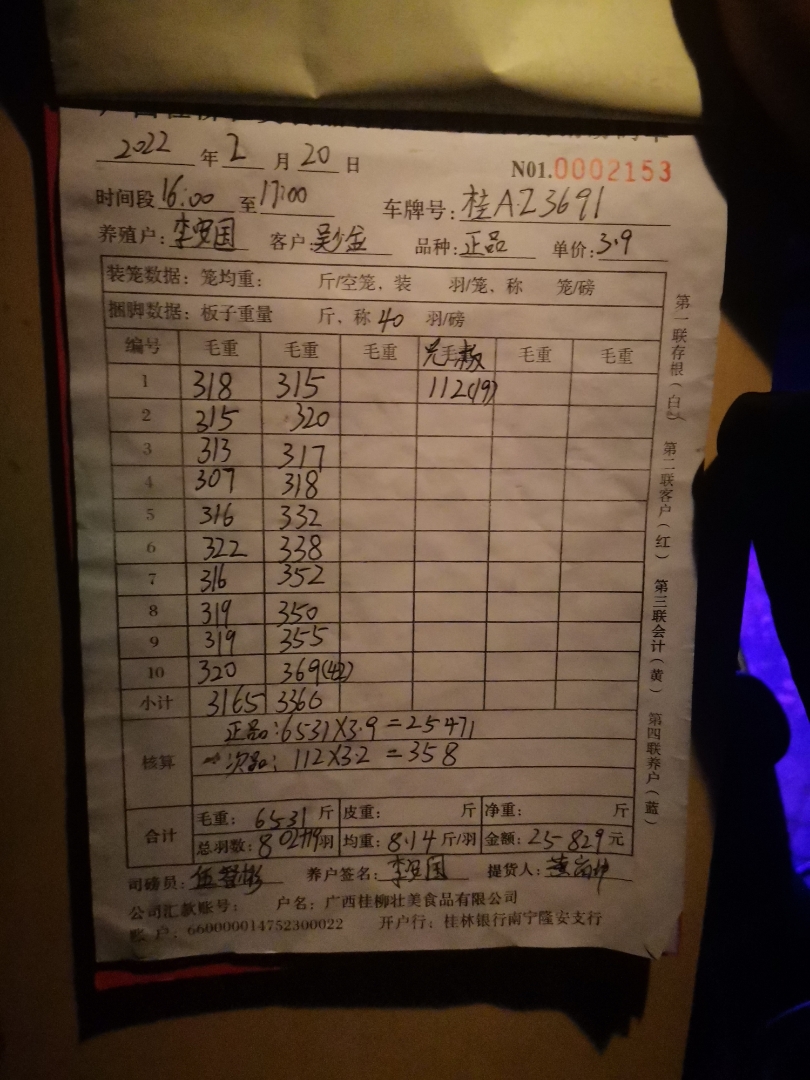 2022 年 2 月 20 日
N01.0002153
时间段 16:00 至 17:00 车牌号: 桂A·Z3691
养殖户: 李 国 客户: 吴少金 品种: 正品 单价: 3.9
装笼数据: 笼均重: 斤/空笼、装 羽/笼、称 笼/磅
捆脚数据: 板子重量 斤、称 40 羽/磅
编号 毛重 毛重 毛重 毛重 毛重
1 318 315 112(19)
2 315 320
3 313 317
4 307 318
5 316 332
6 322 338
7 316 352
8 319 350
9 319 355
10 320 369(42)
小计 3165 3366
核算
正品: 6531X3.9=25471
次品: 112X3.2=358
合计
毛重: 6531 斤 皮重: 斤 净重: 斤
总羽数: 802+19羽 均重: 8.14 斤/羽 金额: 25829 元
司磅员: 养户签名: 李 国 提货人:
公司汇款账号: 户名: 广西桂柳壮美食品有限公司
账 户: 660000014752300022 开户行: 桂林银行南宁隆安支行
第一联存根(白) 第二联客户(红) 第三联会计(黄) 第四联养户(蓝)